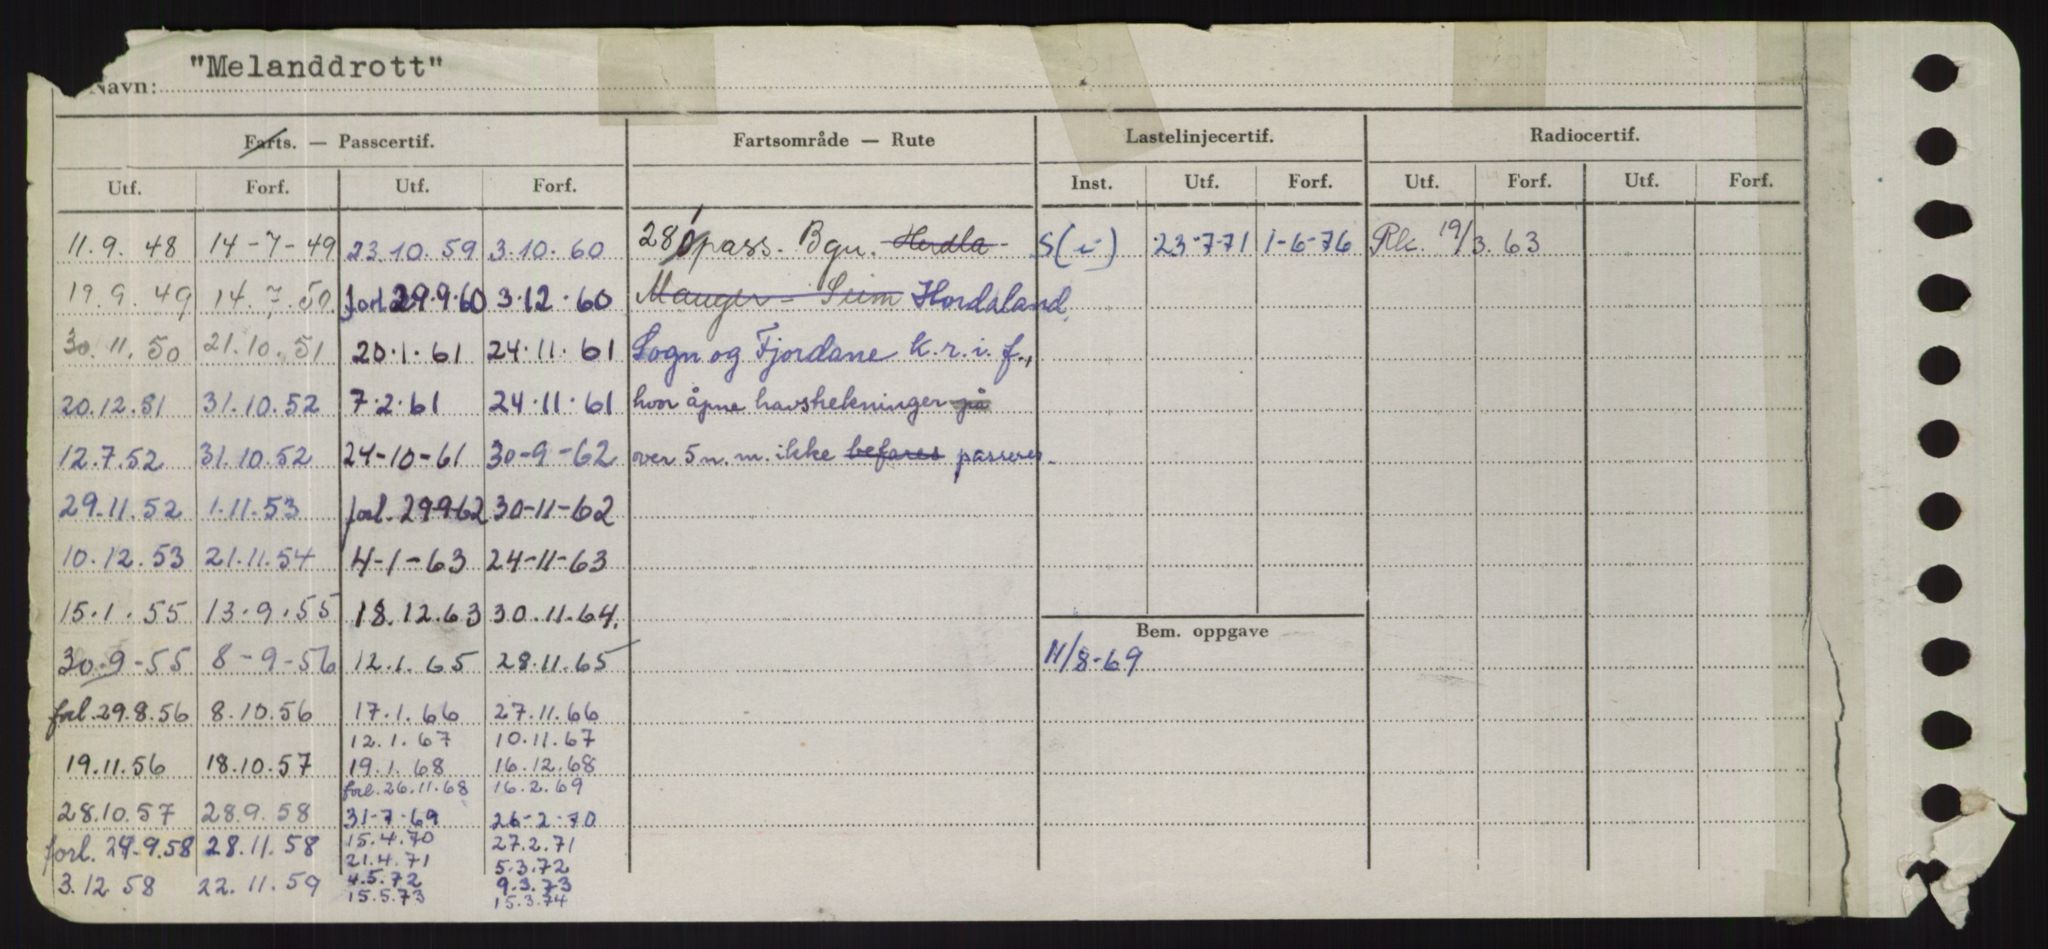 "Melanddrott"
Navn:
Farts. — Passcertif. Fartsområde — Rute Lastelinjecertif. Radiocertif.
Utf. Forf. Utf. Forf. Inst. Utf. Forf. Utf. Forf. Utf. Forf.
11.9.48 14-7-49 23.10.59 3.10.60 280 pass. Bgn. - Herdla - S(i) 23-7-71 1-6-76 Rk. 19/3.63
19.9.49 14.7.50 forl. 29.9.60 3.12.60 Manger - Seim Hordaland,
30.11.50 21.10.51 20.1.61 24.11.61 Sogn og Fjordane k.r.i.f.,
20.12.51 31.10.52 7.2.61 24.11.61 hvor åpne havstrekninger på
12.7.52 31.10.52 24-10-61 30-9-62 over 5 n.m. ikke befares passeres.
29.11.52 1.11.53 forl. 29-9-62 30-11-62
10.12.53 21.11.54 4-1-63 24-11-63
15.1.55 13.9.55 18.12.63 30.11.64.
Bem. oppgave
30.9-55 8-9-56 12.1.65 28.11.65 11/8-69
forl. 29.8.56 8.10.56 17.1.66 27.11.66
12.1.67 10.11.67
19.11.56 18.10.57 19.1.68 16.12.68
forl. 26.11.68 16.2.69
28.10.57 28.9.58 31-7-69 26-2-70
forl. 29.9.58 28.11.58 15.4.70 27.2.71
21.4.71 5.3.72
3.12 58 22.11.59 4.5.72 9.3.73
15.5.73 15.3.74